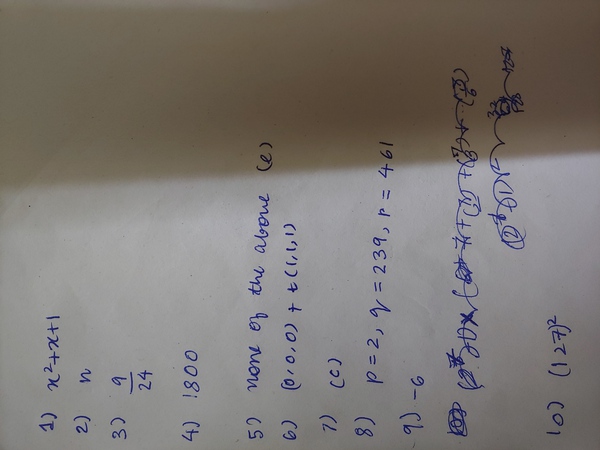 1) x²+x+1
2) n
3) 9/24
4) 1800
5) none of the above (e)
6) (0,0,0) + t(1,1,1)
7) (c)
8) p=2, q=239, r=461
9) -6
10) (127)²